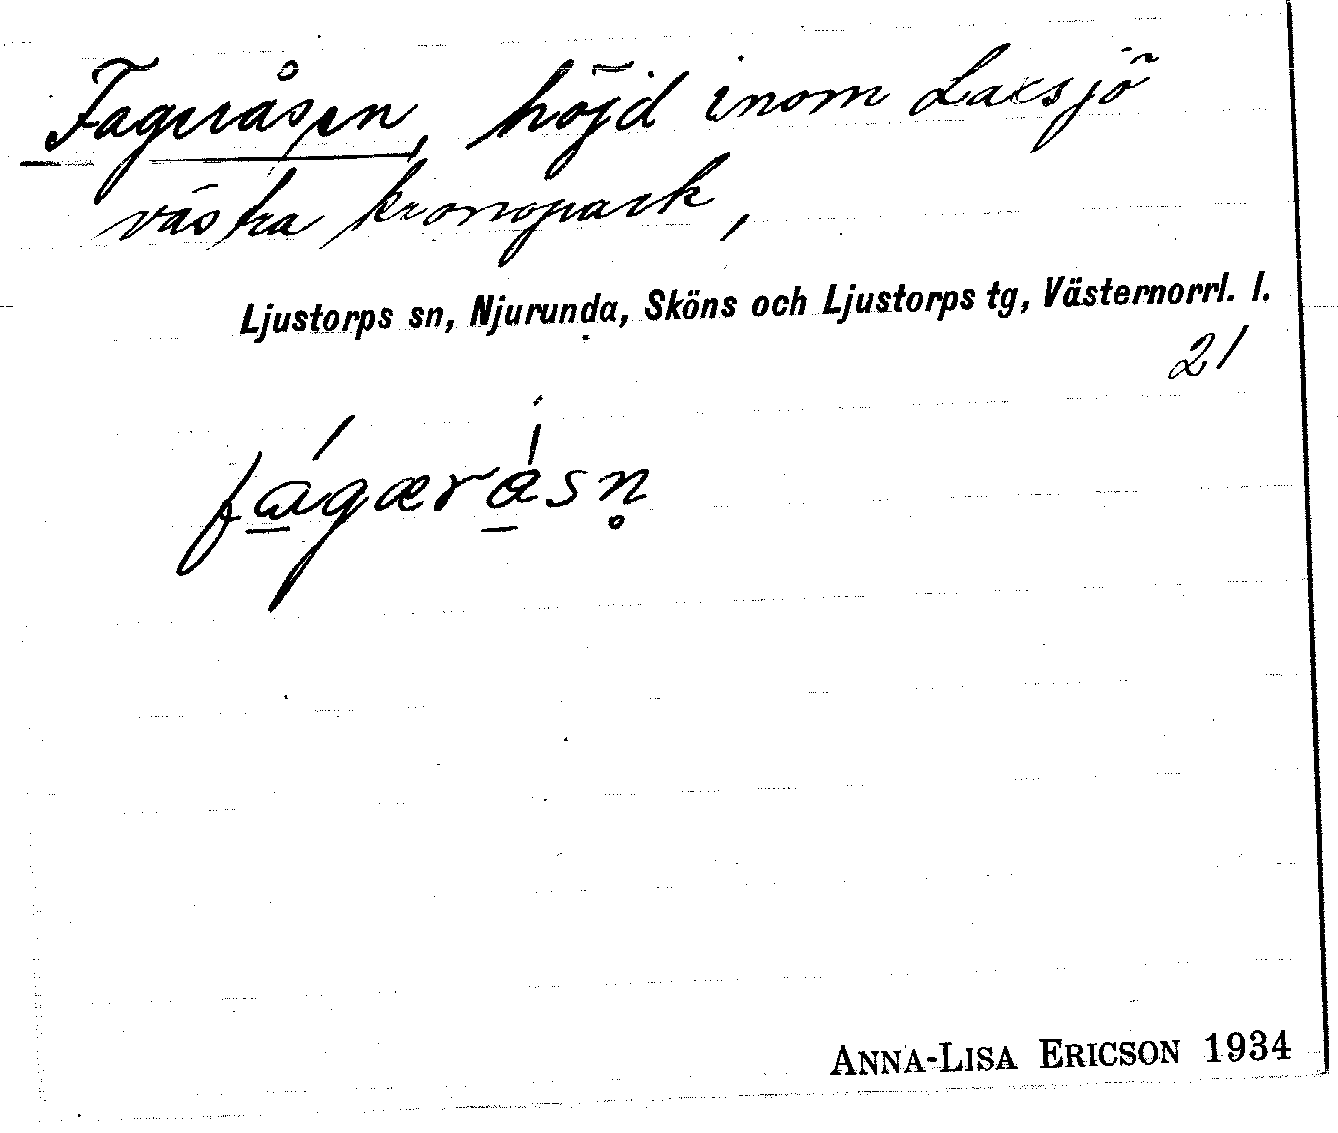 Fageråsen, höjd inom Laxsjö
västra kronopark,
Ljustorps sn, Njurunda, Sköns och Ljustorps tg, Västernorrl. l.
21
fá̲gærǻ̲sn̥
ANNA-LISA ERICSON 1934